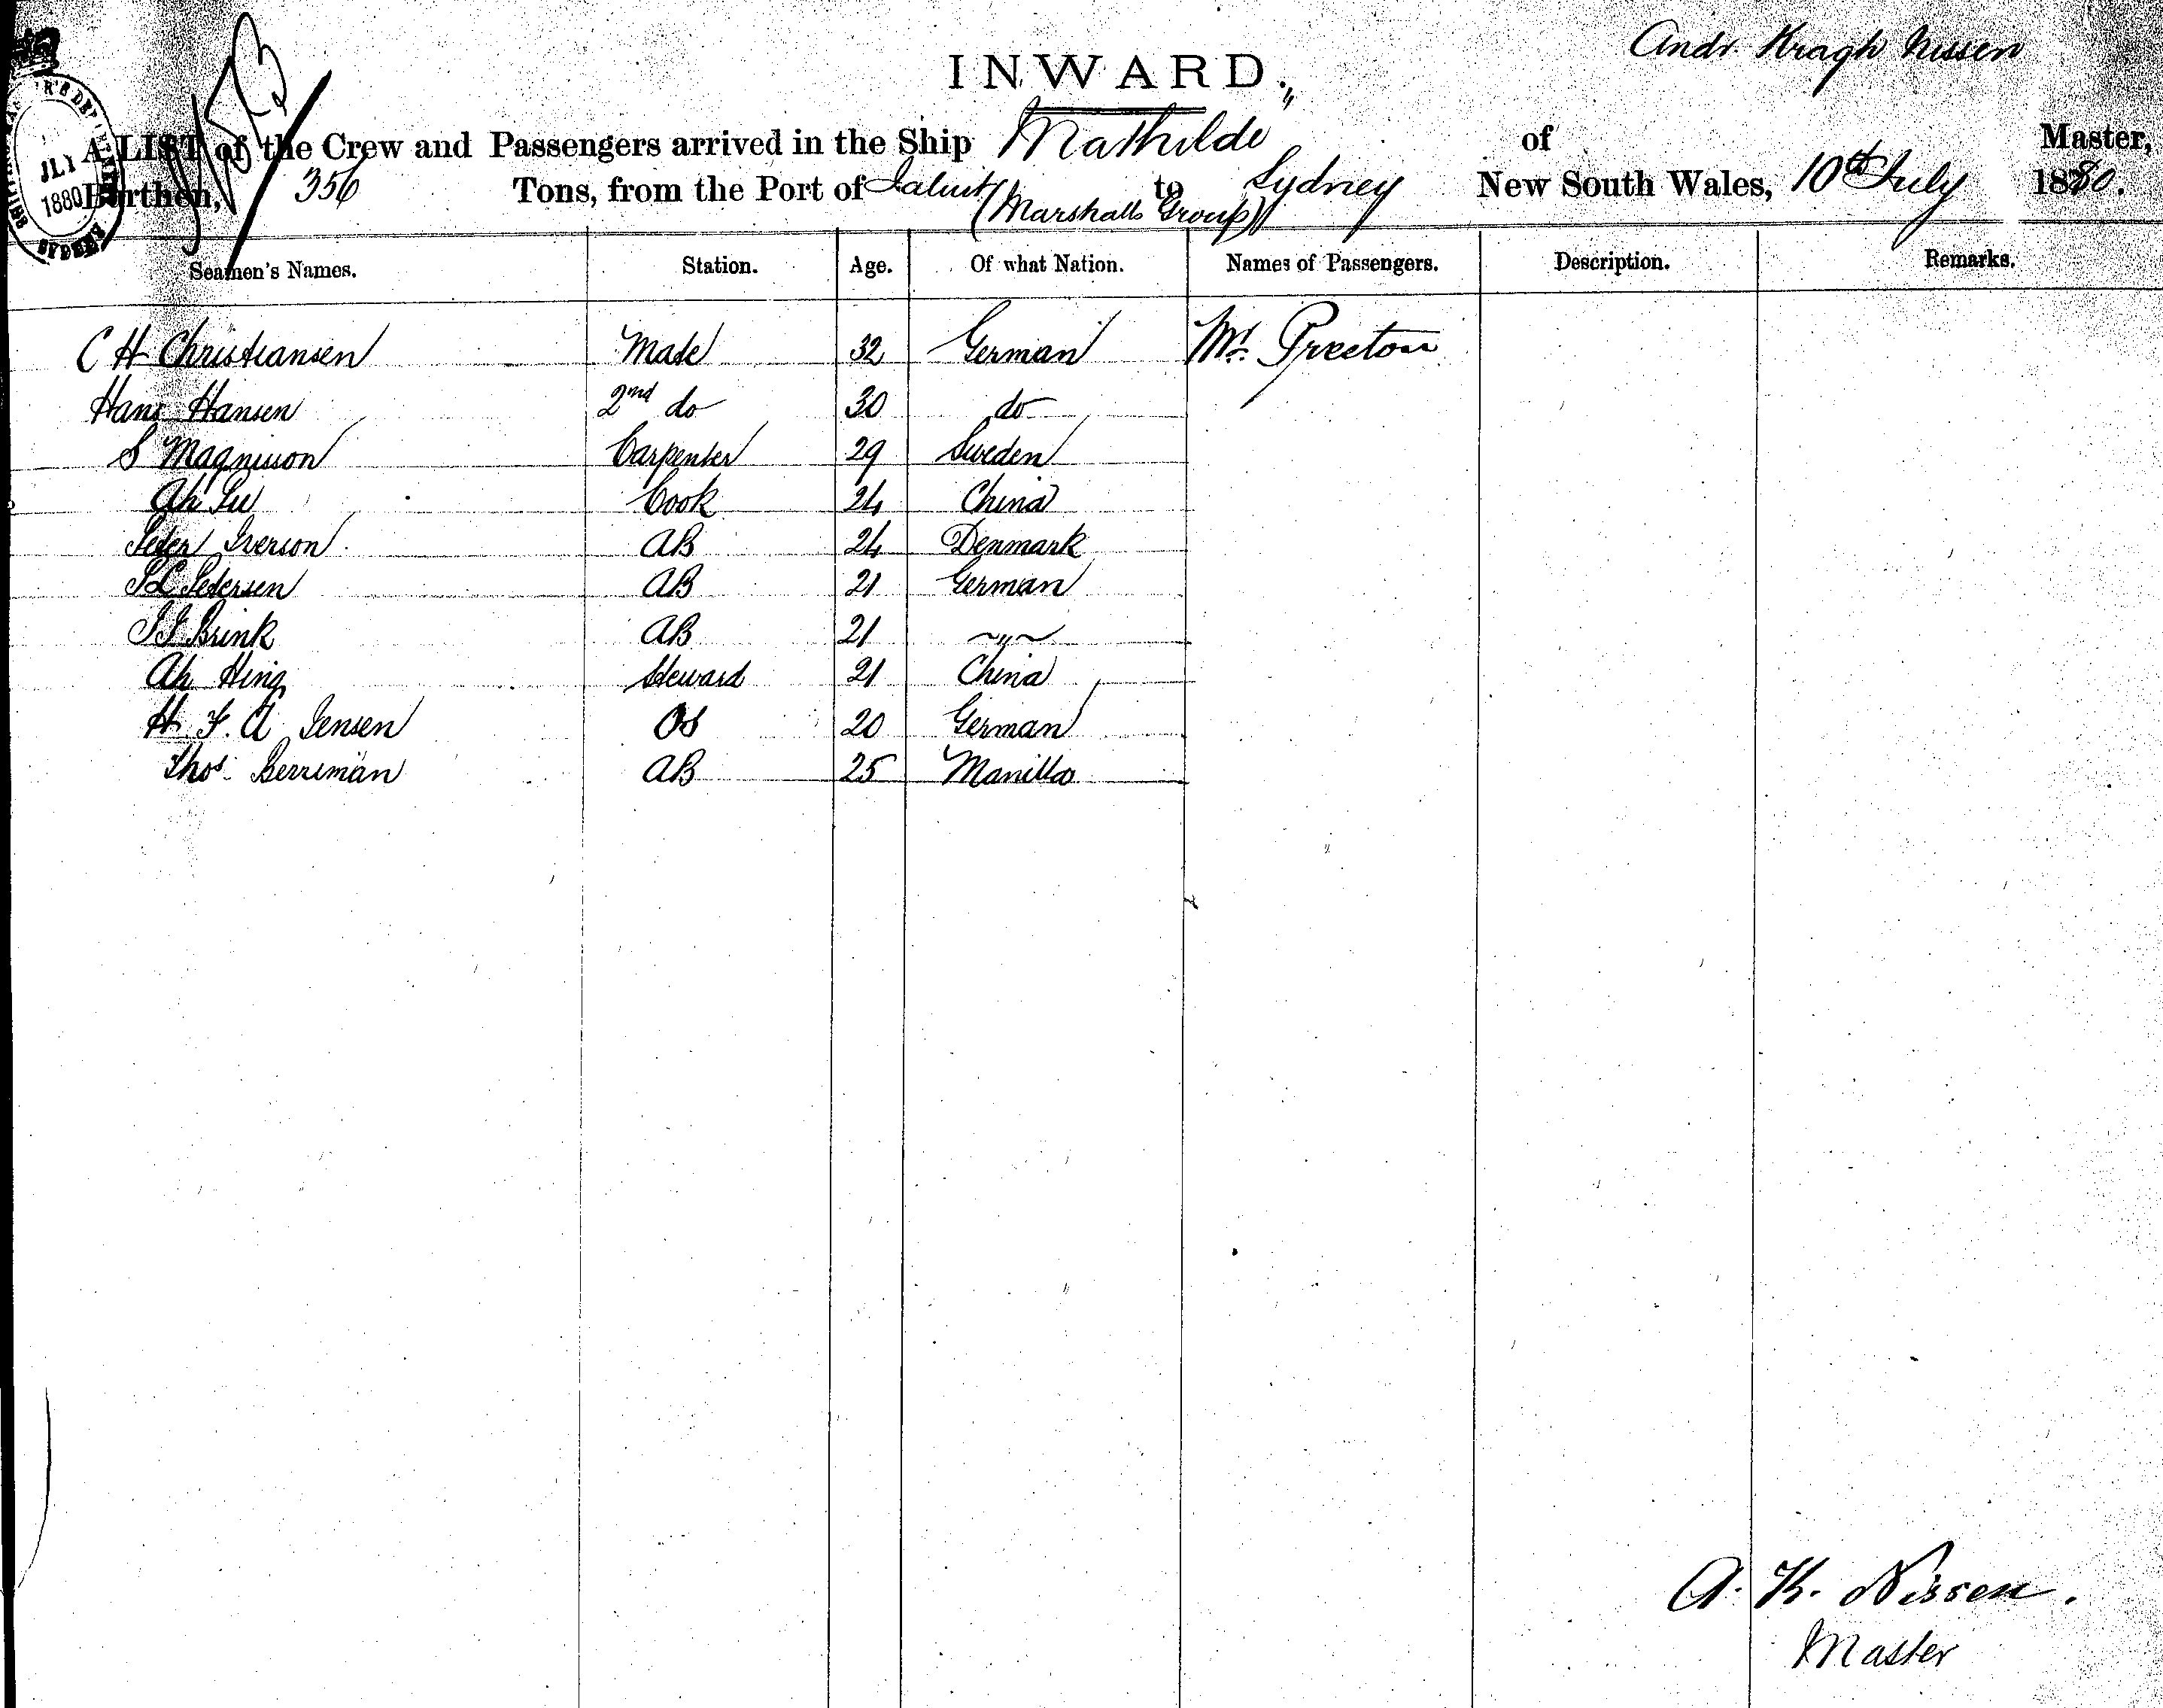 Andr. Kragh Nissen
INWARD.
A LIST of the Crew and Passengers arrived in the Ship Mathilde of Master,
Burthen, 356 Tons, from the Port of Jaluit (Marshalls Group) to Sydney New South Wales, 10th July 1880.
JLY
1880
SYDNEY
Seamen's Names. Station. Age. Of what Nation. Names of Passengers. Description. Remarks.
C H Christiansen Mate 32 German Mr. Preston
Hans Hansen 2nd do 30 do
S Magnisson Carpenter 29 Sweden
Ah Cook 24 China
Peder Iverson. AB 24 Denmark
Pedersen AB 21 German
Brink AB 21 ~"~
Ah Hing Steward 21 China
H. F. A Jensen OS 20 German
Thos. Berriman AB 25 Manilla
A. K. Nissen.
Master